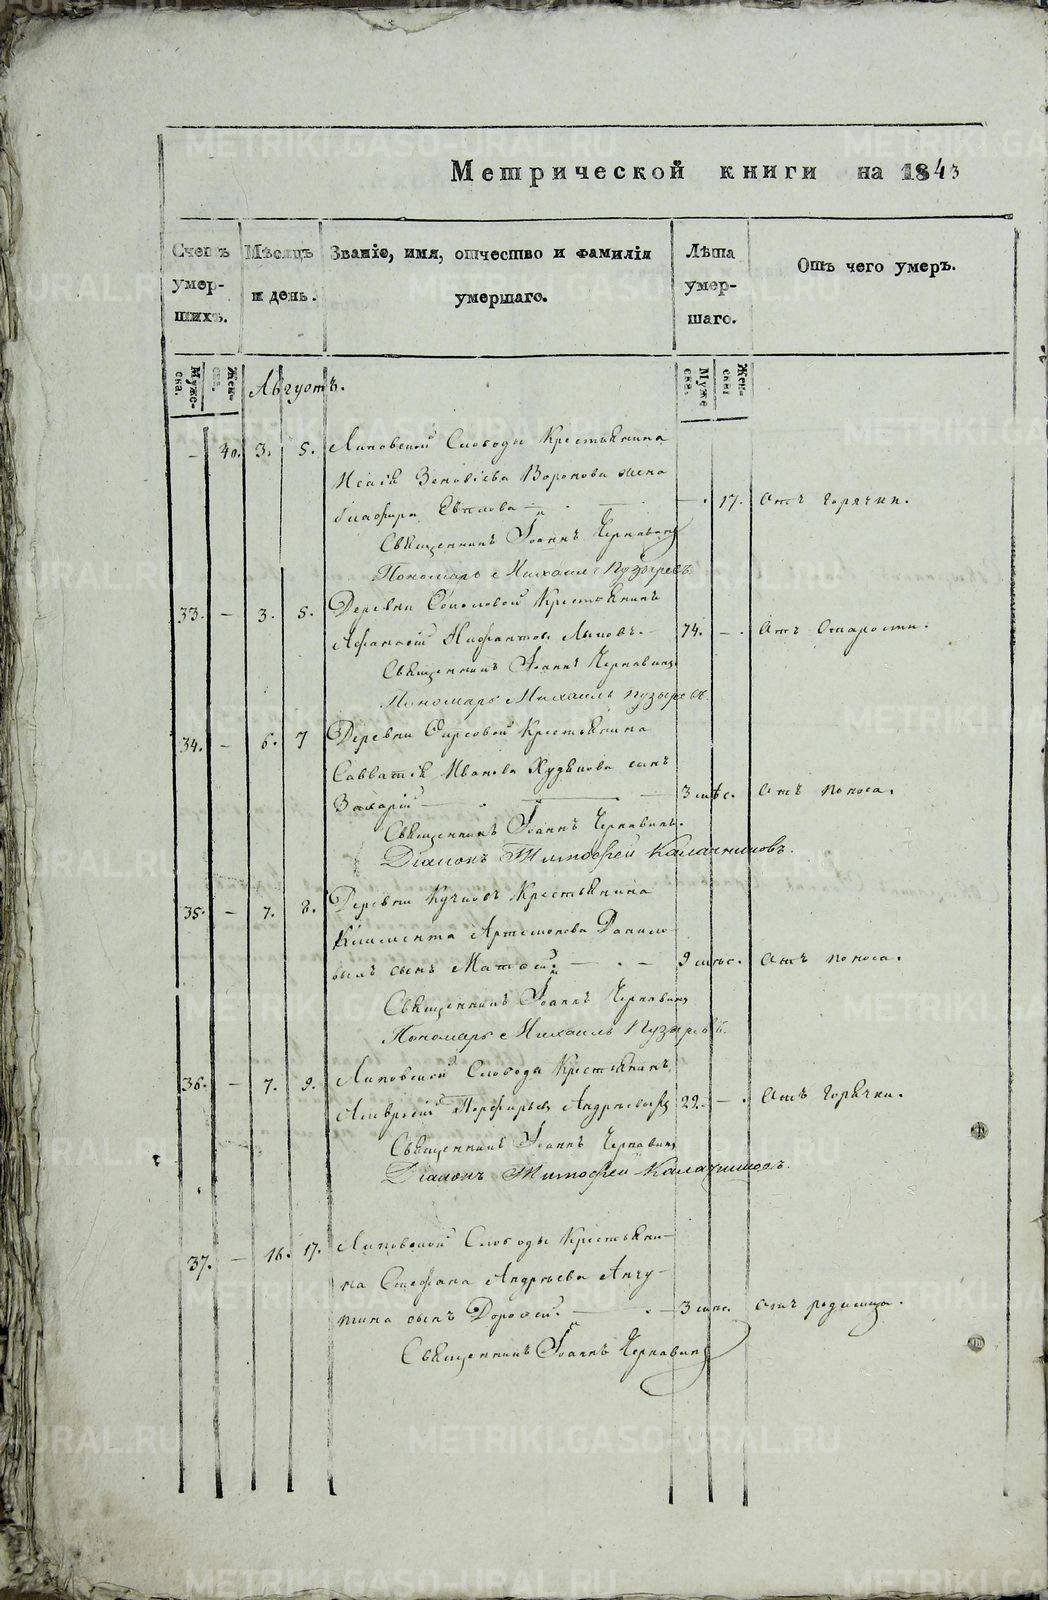 Метрической книги на 1843
Счетъ умершихъ.
Мѣсяцъ и день.
Званіе, имя, отчество и фамилія умершаго.
Лѣта умершаго.
Отъ чего умеръ.
Мужеска.
Женска.
Августъ.
Мужеска.
Женска
– 40. 3. 5. Липовской Слободы Крестьянина
Исаія Зеновіева Воронова жена
Гликерія – . 17. отъ горячки.
Священникъ Іоаннъ Чернавинъ
Пономарь Михаилъ Пузыревъ
33. – 3. 5. Деревни Соколовой Крестьянинъ
Афанасій Лыковъ. 74. – . отъ старости.
Священникъ Іоаннъ Чернавинъ
Пономарь Михаилъ Пузыревъ
34. – 6. 7 Деревни Фирсовой Крестьянина
Савватія Иванова Худякова сынъ
Захарій – 3 мѣс. отъ поноса.
Священникъ Іоаннъ Чернавинъ.
Діаконъ Тимофей Калачниковъ.
35. – 7. 8. Деревни Крестьянина
Климента Артемонова Данило-
выхъ сынъ Матвей. – . – 9 мѣс. отъ поноса.
Священникъ Іоаннъ Чернавинъ
Пономарь Михаилъ Пузыревъ.
36. – 7. 9. Липовской Слободы Крестьянинъ
Амвросій Порфирьевъ 22. – . отъ горячки.
Священникъ Іоаннъ Чернавинъ
Діаконъ Тимофей Калачниковъ.
37. – 16. 17. Липовской Слободы Крестьяни-
на Стефана Андреева Анчу-
тина сынъ Дорофей. – . – 3 мѣс. отъ родимца.
Священникъ Іоаннъ Чернавинъ
METRIKI.GASO-URAL.RU